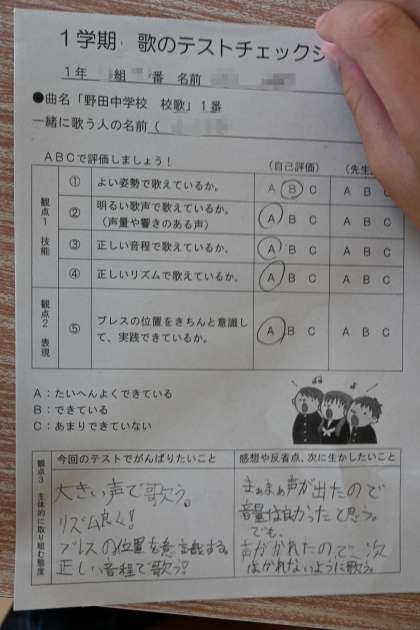 １学期 歌のテストチェックシ
１年 組 番 名前
●曲名「野田中学校 校歌」１番
一緒に歌う人の名前（
ＡＢＣで評価しましょう！ （自己評価） （先生
観点１ 技能
① よい姿勢で歌えているか。 Ａ Ｂ Ｃ Ａ Ｂ Ｃ
② 明るい歌声で歌えているか。 Ａ Ｂ Ｃ Ａ Ｂ Ｃ
（声量や響きのある声）
③ 正しい音程で歌えているか。 Ａ Ｂ Ｃ Ａ Ｂ Ｃ
④ 正しいリズムで歌えているか。 Ａ Ｂ Ｃ Ａ Ｂ Ｃ
観点２ 表現
⑤ ブレスの位置をきちんと意識し
て、実践できているか。 Ａ Ｂ Ｃ Ａ Ｂ Ｃ
Ａ：たいへんよくできている
Ｂ：できている
Ｃ：あまりできていない
観点３ 主体的に取り組む態度
今回のテストでがんばりたいこと
大きい声で歌う。
リズム良く！
ブレスの位置を意識する。
正しい音程で歌う！
感想や反省点、次に生かしたいこと
まぁまぁ声が出たので
音量は良かったと思う。
でも、
声がかれたので、次
はかれないように歌う。